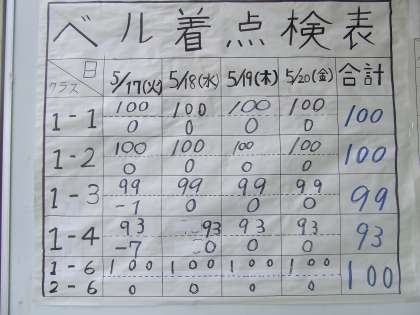 ベル着点検表
日 クラス 5/17(火) 5/18(水) 5/19(木) 5/20(金) 合計
1-1 100 100 100 100 100
0 0 0 0
1-2 100 100 100 100 100
0 0 0 0
1-3 99 99 99 99 99
-1 0 0 0
1-4 93 93 93 93 93
-7 0 0 0
1-6 100 100 100 100 100
2-6 0 0 0 0